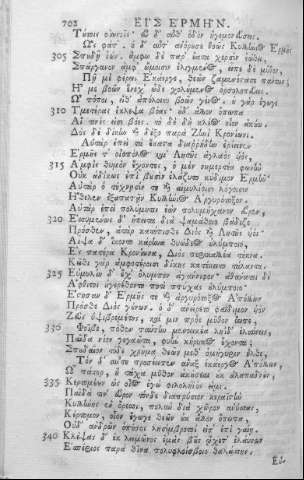 702 ΕΙΣ ΕΡΜΗΝ.
Τούτοις οἰωνοῖσι· σὺ δ' αὖθ' ὁδὸν ἡγεμονεύσεις.
Ὣς φάτ'. ὁ δ' αὖτ' ἀνόρουσε θοῶς Κυλλήνιος Ἑρμῆς
305 Σπουδῇ ἰών. ἄμφω δὲ παρ' οὔατα χερσὶν ἐώθει,
Σπάργανον ἀμφ' ὤμοισιν ἐελμένος, εἶπε δὲ μῦθον,
Πῆ με φέρεις Ἑκάεργε, θεῶν ζαμενέστατε πάντων;
Ἦ με βοῶν ἕνεχ' ὧδε χολούμενος ὀρσολοπεύεις;
Ὢ πόποι, εἴθ' ἀπόλοιτο βοῶν γένος. οὐ γὰρ ἔγωγε
310 Ὑμετέρας ἔκλεψα βόας· οὐδ' ἄλλον ὄπωπα
Αἵ τινές εἰσι βόες. τὸ δὲ δὴ κλέος οἶον ἀκούω.
Δὸς δὲ δίκην καὶ δέξο παρὰ Ζηνὶ Κρονίωνι.
Αὐτὰρ ἐπεὶ τὰ ἕκαστα διαρρήδην ἐρίεινεν
Ἑρμῆς τ' οἰοπόλος καὶ Λητοῦς ἀγλαὸς υἱός,
315 Ἀμφὶς θυμὸν ἔχοντες. ὁ μὲν νημερτέα φωνῶν
Οὐκ ἀδίκως ἐπὶ βουσὶν ἐλάζυτο κύδιμον Ἑρμῆν·
Αὐτὰρ ὁ τέχνῃσίν τε καὶ αἱμυλίοισι λόγοισιν
Ἤθελεν ἐξαπατᾶν Κυλλήνιος Ἀργυρότοξον.
Αὐτὰρ ἐπεὶ πολύμητις ἐὼν πολυμήχανον εὗρεν,
320 Ἐσσυμένως δ' ἤπειτα διὰ ψαμάθοιο βάδιζε
Πρόσθεν, ἀτὰρ κατόπισθε Διὸς καὶ Λητοῦς υἱός.
Αἶψα δ' ἵκοντο κάρηνα θυώδεος Οὐλύμποιο,
Ἐς πατέρα Κρονίωνα, Διὸς περικαλλέα τέκνα.
Κεῖθι γὰρ ἀμφοτέροισι δίκης κατέκειτο τάλαντα.
325 Εὐμυλίη δ' ἔχ' Ὄλυμπον ἀγάννιφον· ἀθάνατοι δὲ
Ἄφθιτοι ἠγερέθοντο ποτὶ πτύχας Οὐλύμποιο
Ἔστησαν δ' Ἑρμῆς τε καὶ ἀργυρότοξος Ἀπόλλων
Πρόσθε Διὸς γούνων. ὁ δ' ἀνείρετο φαίδιμον υἱὸν
Ζεὺς ὑψιβρεμέτης, καί μιν πρὸς μῦθον ἔειπε,
330 Φοῖβε, πόθεν ταύτην μενοεικέα ληΐδ' ἐλαύνεις,
Παῖδα νέον γεγαῶτα, φυὴν κήρυκος ἔχοντα;
Σπουδαῖον τόδε χρῆμα θεῶν μεθ' ὁμήγυριν ἦλθε.
Τὸν δ' αὖτε προσέειπεν ἄναξ ἑκάεργος Ἀπόλλων,
Ὦ πάτερ, ἦ τάχα μῦθον ἀκούσεαι οὐκ ἀλαπαδνόν,
335 Κερτομέων ὡς οἶος ἐγὼ φιλολήϊός εἰμι.
Παῖδά τιν' εὗρον τόνδε διαπρύσιον κεραϊστὴν
Κυλλήνης ἐν ὄρεσσι, πολὺν διὰ χῶρον ἀνύσσας,
Κέρτομον, οἷον ἔγωγε θεῶν οὐκ ἄλλον ὄπωπα,
Οὐδ' ἀνδρῶν ὁπόσοι λησίμβροτοί εἰσ' ἐπὶ γαῖαν.
340 Κλέψας δ' ἐκ λειμῶνος ἐμὰς βοῦς ᾤχετ' ἐλαύνων
Ἑσπέριος παρὰ θῖνα πολυφλοίσβοιο θαλάσσης,